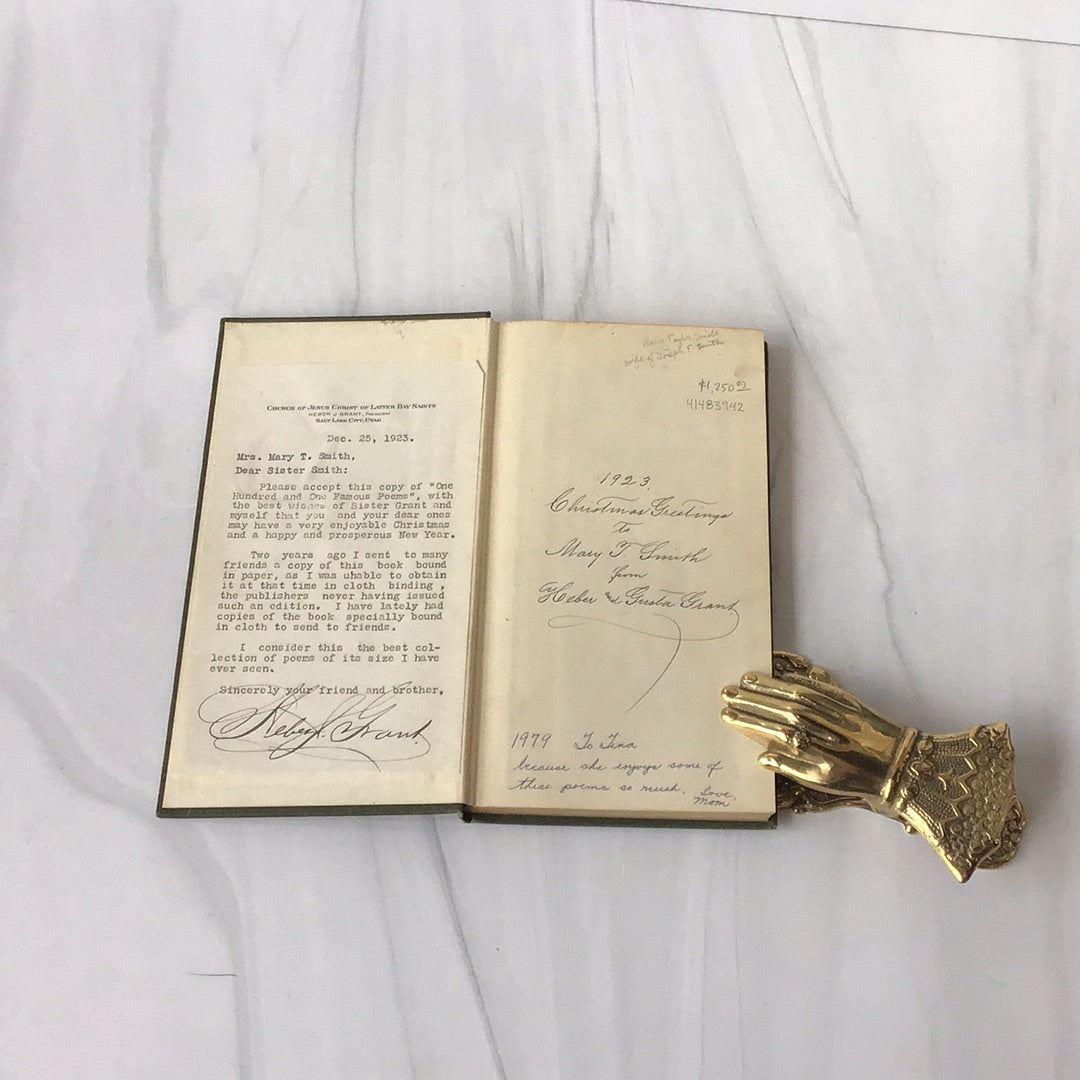 CHURCH OF JESUS CHRIST OF LATTER DAY SAINTS
HEBER J GRANT, PRESIDENT
SALT LAKE CITY, UTAH
Dec. 25, 1923.
Mrs. Mary T. Smith,
Dear Sister Smith:
Please accept this copy of "One
Hundred and One Famous Poems", with
the best wishes of Sister Grant and
myself that you and your dear ones
may have a very enjoyable Christmas
and a happy and prosperous New Year.
Two years ago I sent to many
friends a copy of this book bound
in paper, as I was uhable to obtain
it at that time in cloth binding ,
the publishers never having issued
such an edition. I have lately had
copies of the book specially bound
in cloth to send to friends.
I consider this the best col-
lection of poems of its size I have
ever seen.
Sincerely your friend and brother,
Heber J. Grant.
Mary Taylor Smith
wife of Joseph F Smith
$1,250.00
41483942
1923
Christmas Greetings
To
Mary T Smith
from
Heber and Gusta Grant
1979 To Tina
because she enjoys some of
these poems so much. Love,
Mom